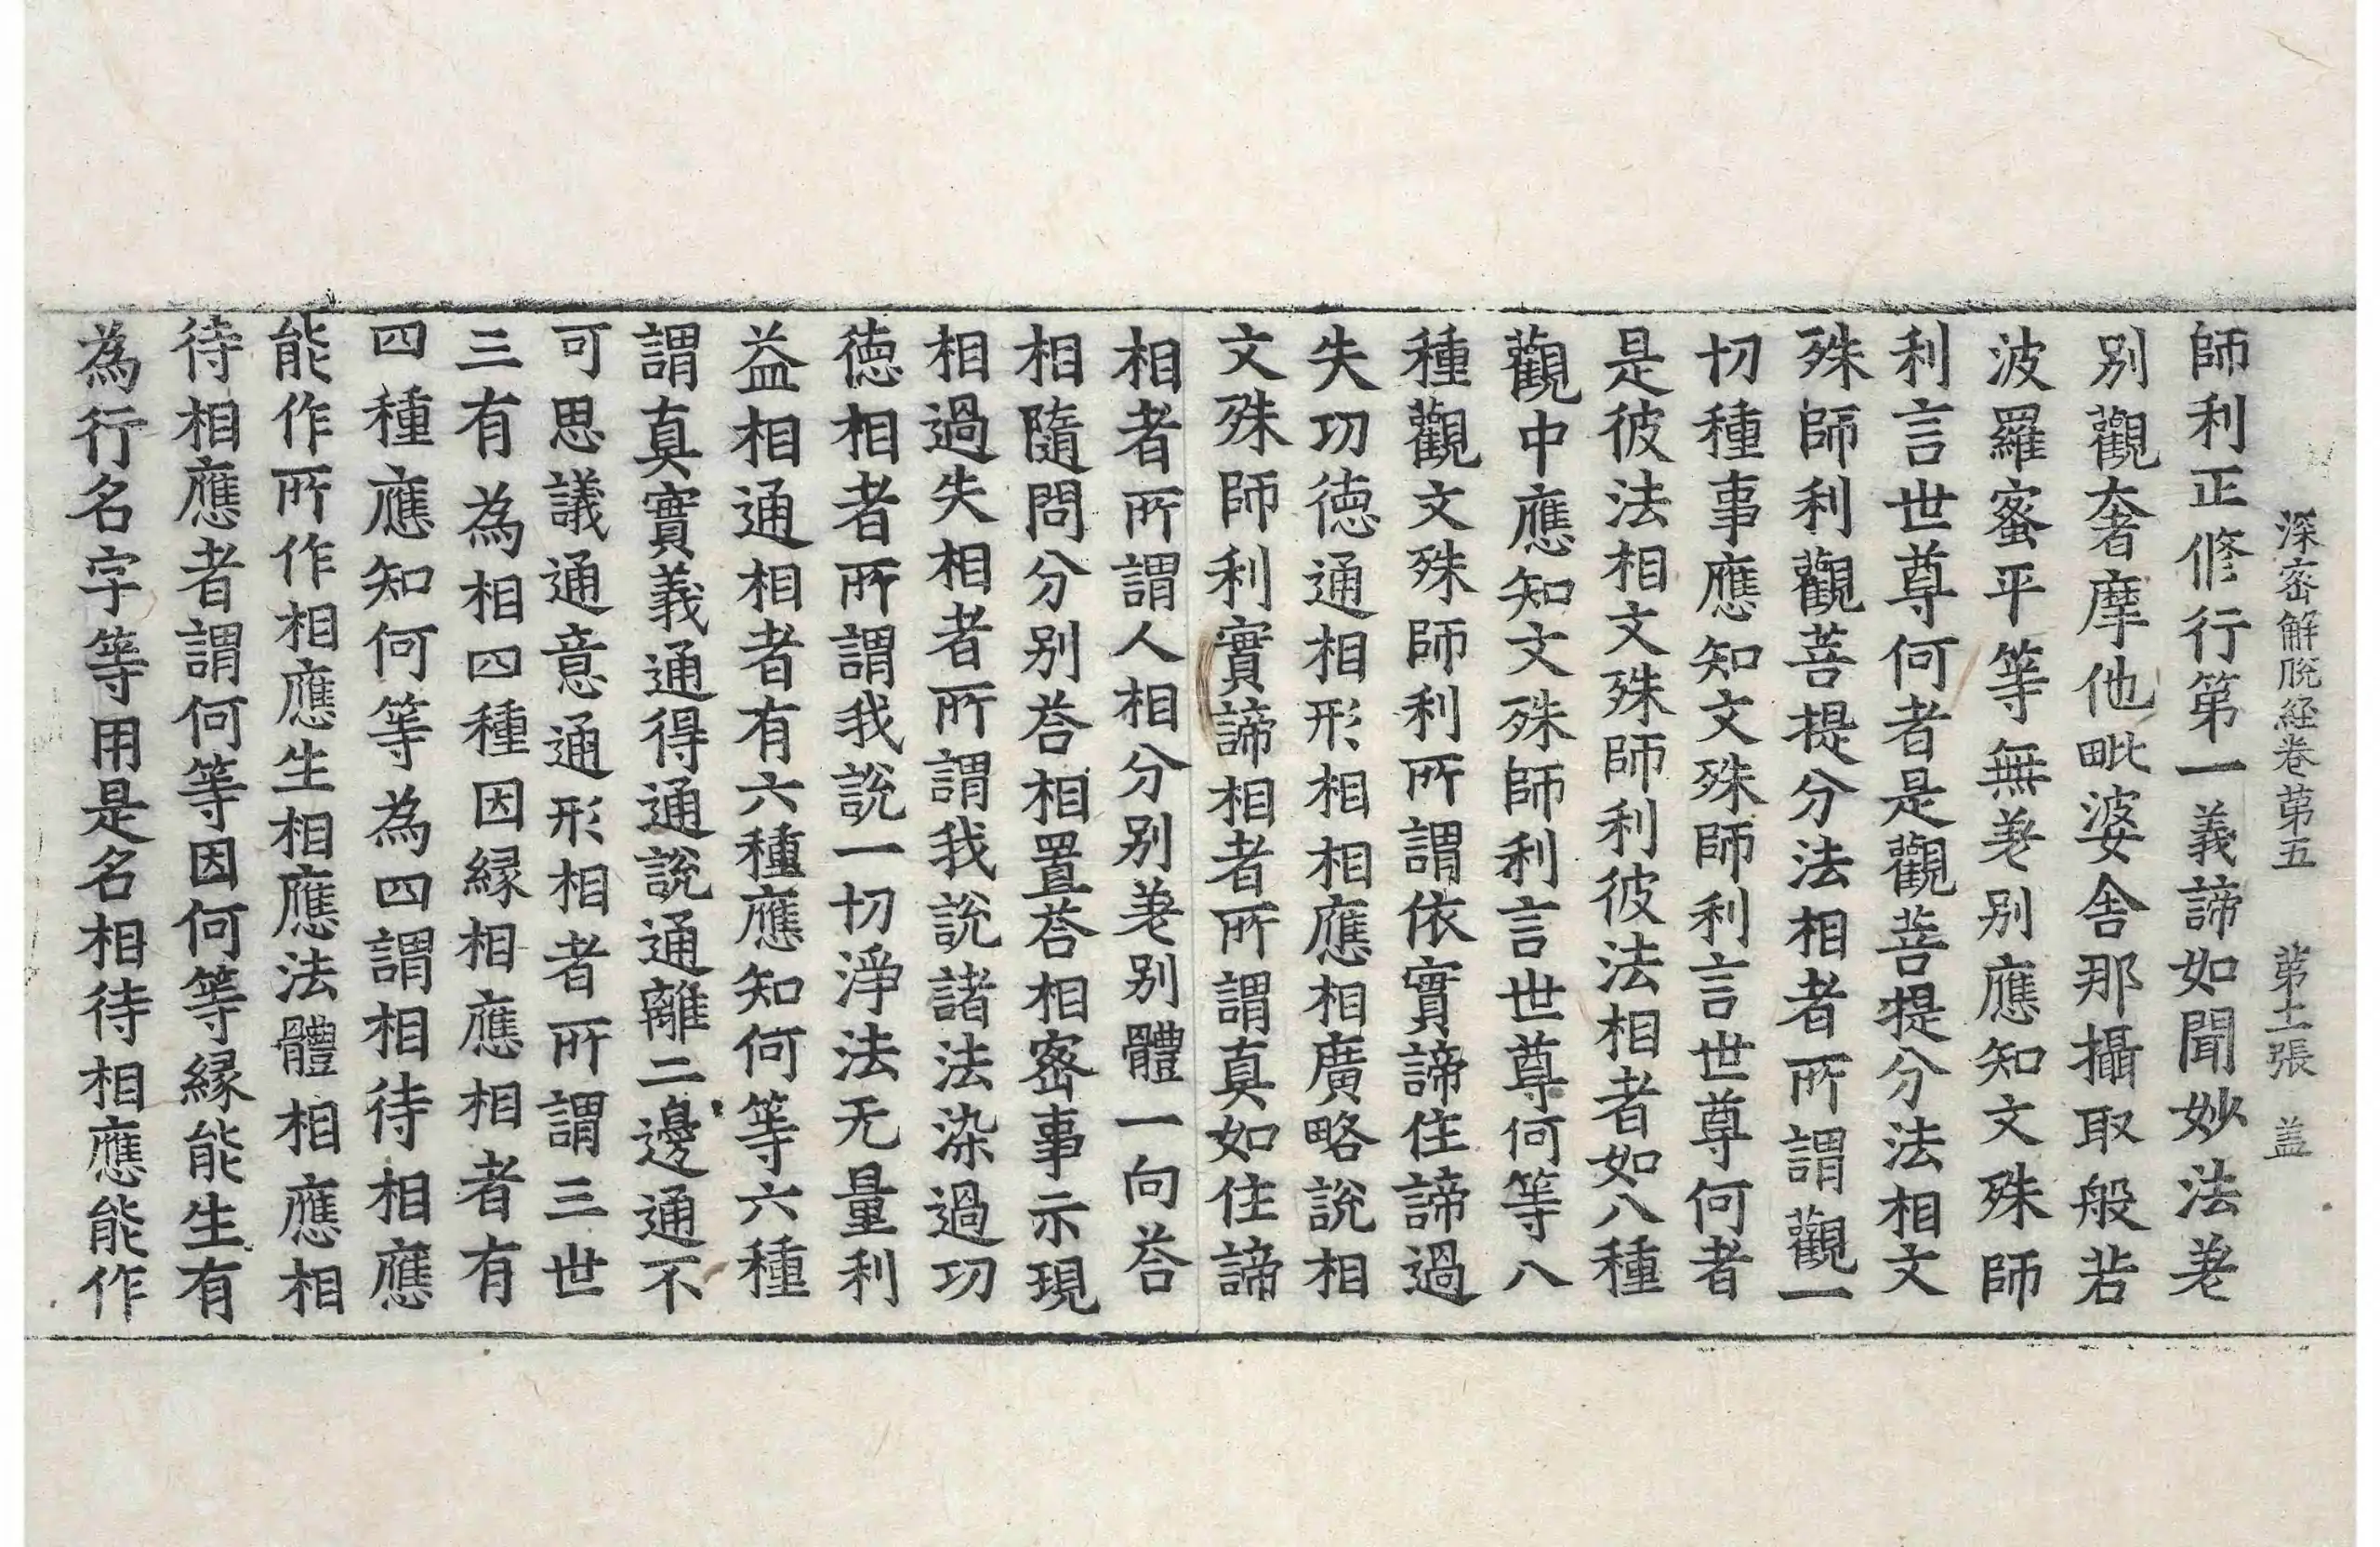 深密解脫経卷第五 第十二張 盖
師利正修行第一義諦如聞妙法差
別觀奢摩他毗婆舍那攝取般若
波羅蜜平等無差別應知文殊師
利言世尊何者是觀菩提分法相文
殊師利觀菩提分法相者所謂觀一
切種事應知文殊師利言世尊何者
是彼法相文殊師利彼法相者如八種
觀中應知文殊師利言世尊何等八
種觀文殊師利所謂依實諦住諦過
失功德通相形相相應相廣略說相
文殊師利實諦相者所謂真如住諦
相者所謂人相分別差別體一向荅
相隨問分別荅相置荅相密事示現
相過失相者所謂我說諸法染過功
德相者所謂我說一切淨法无量利
益相通相者有六種應知何等六種
謂真實義通得通說通離二邊通不
可思議通意通形相者所謂三世
三有為相四種因緣相應相者有
四種應知何等為四謂相待相應
能作所作相應生相應法體相應相
待相應者謂何等因何等緣能生有
為行名字等用是名相待相應能作